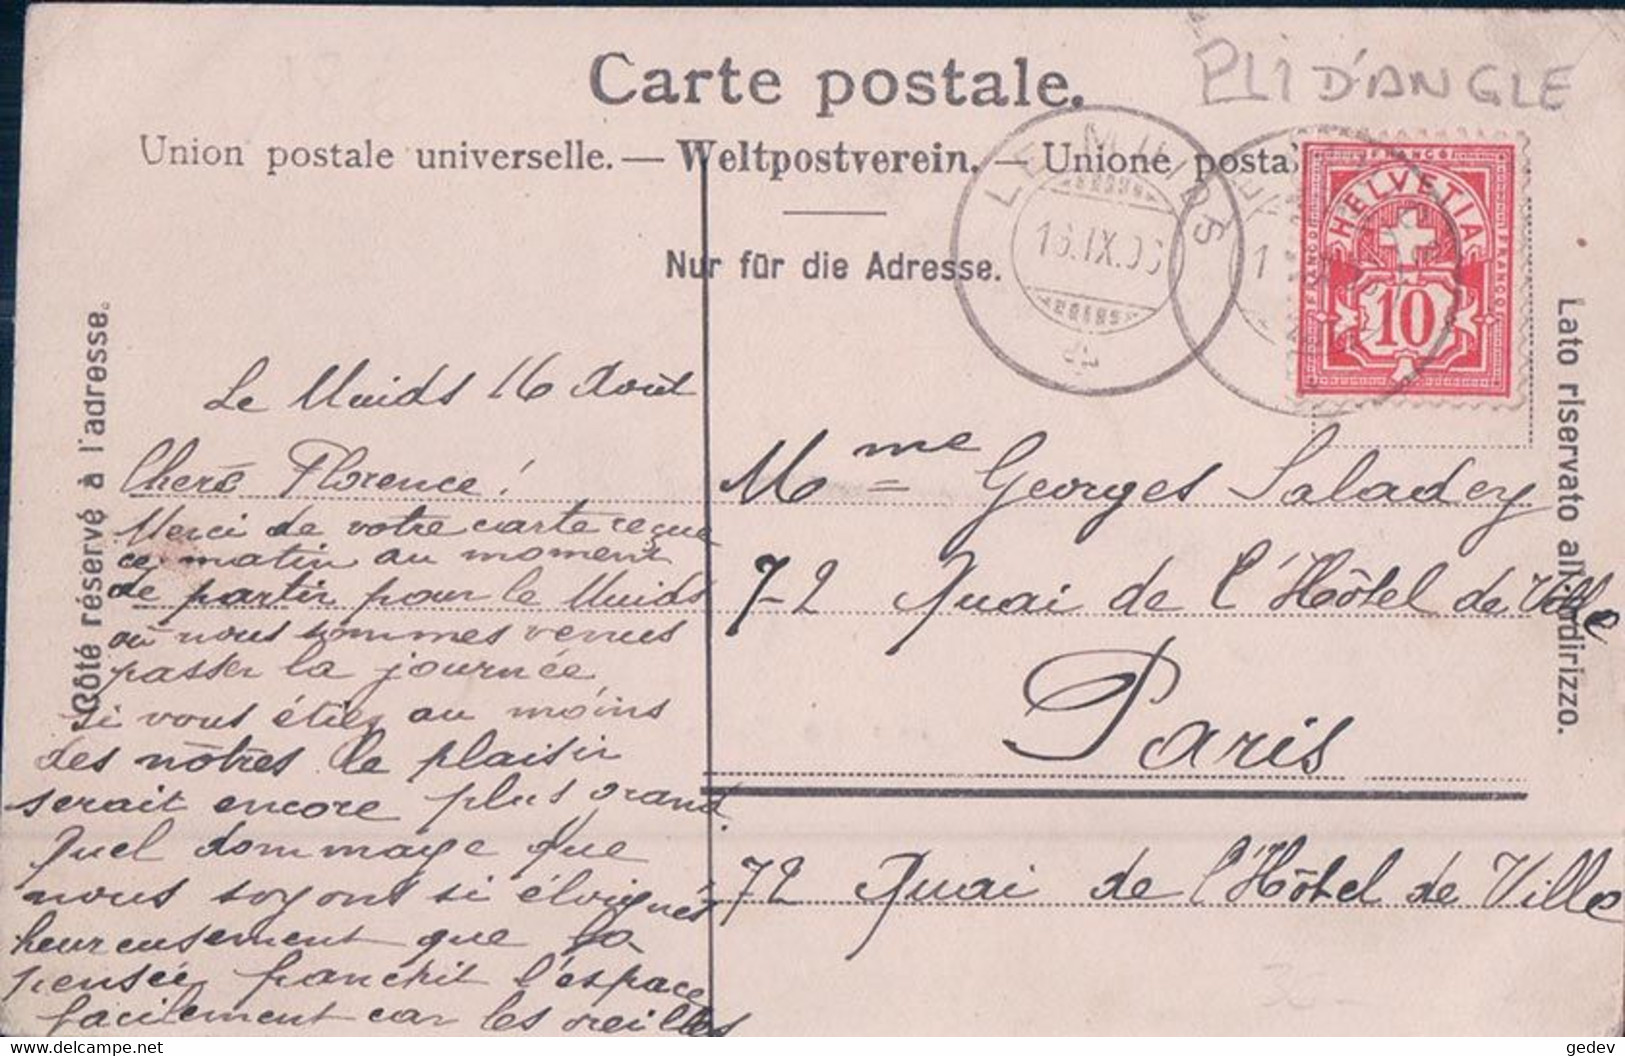 PLI D'ANGLE
Carte postale.
Union postale universelle. — Weltpostverein. — Unione posta
Nur für die Adresse.
Côté réservé à l'adresse.
Lato riservato all'indirizzo.
LE MUIDS
16.IX.06
FRANCO
HELVETIA
FRANCO
FRANCO
10
Le Muids 16 Août
Chere Florence!
Merci de votre carte reçue
ce matin au moment
de partir pour le Muids
où nous sommes venus
passer la journée
si vous étiez au moins
des nôtres le plaisir
serait encore plus grand
Quel dommage que
nous soyons si éloignés
heureusement que la
pensée franchit l'espace
facilement car les oreilles
Mme Georges Saladey
72 Quai de l'Hôtel de Ville
Paris
72 Quai de l'Hôtel de Ville
gedev